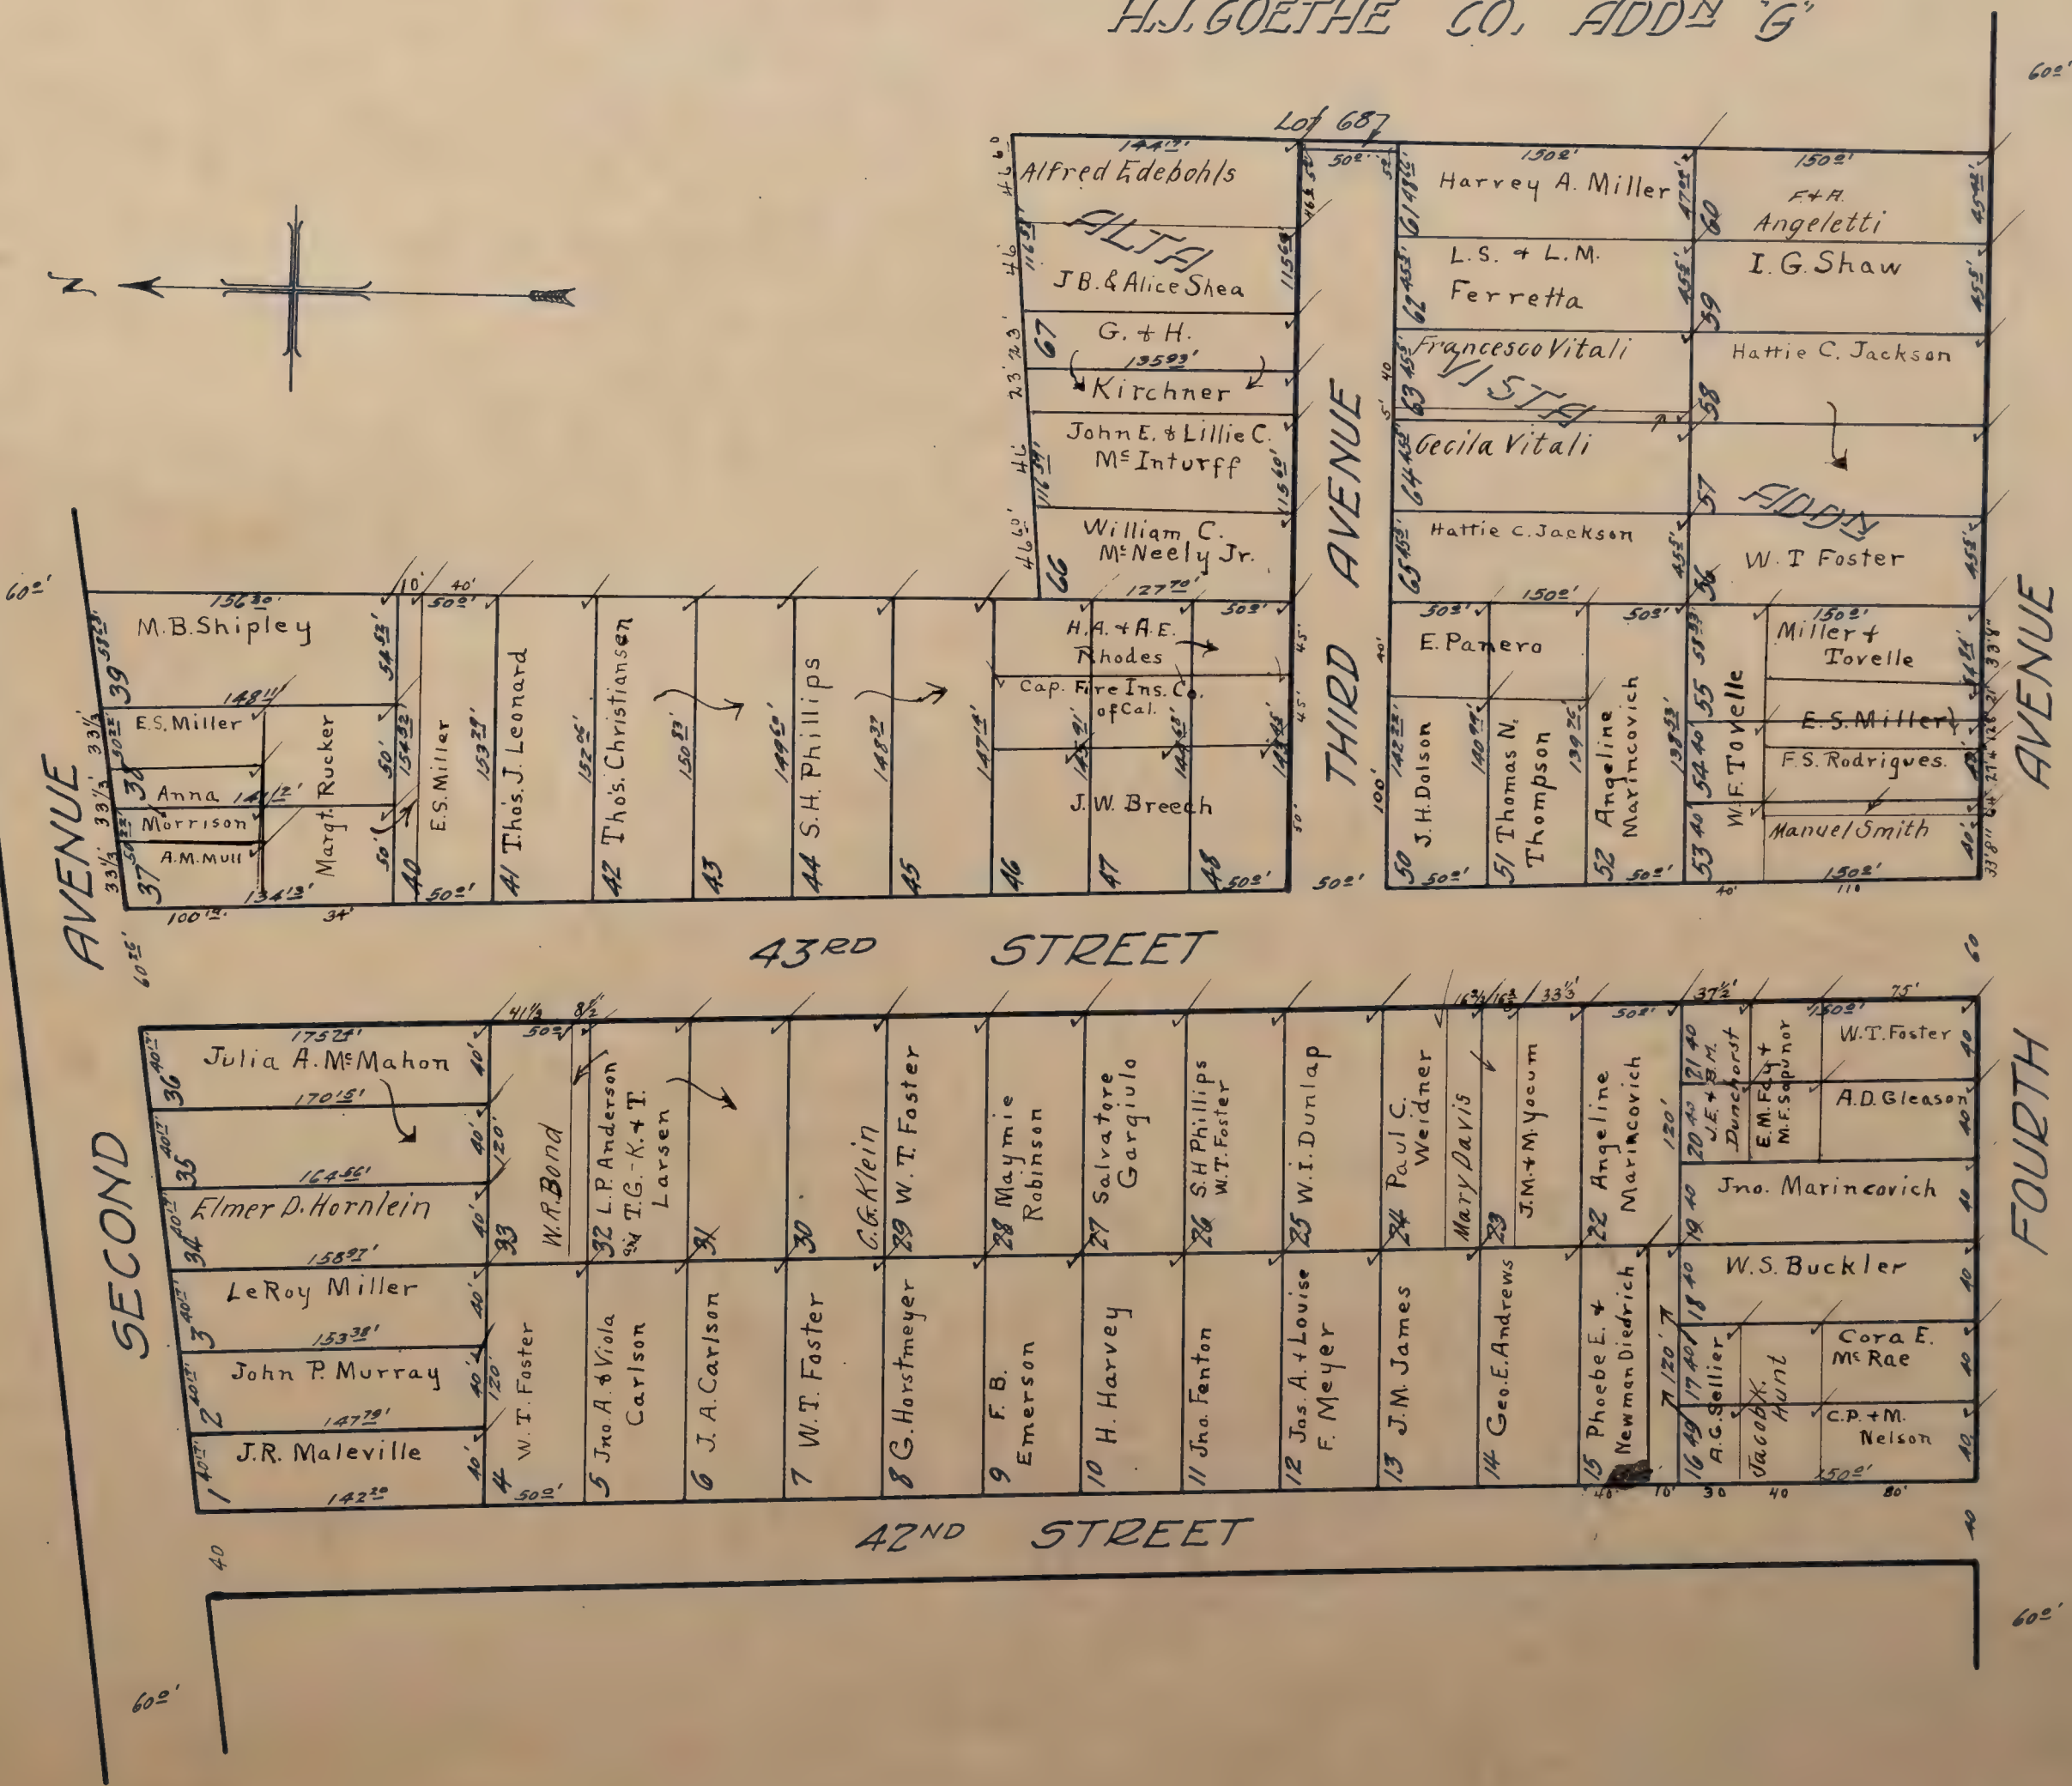 H.J. GOETHE CO. ADDN "G"
60º'
Lot 687
N
Alfred Edebohls
ALTA
J.B. & Alice Shea
67
G. & H.
135.93'
Kirchner
John E. & Lillie C.
McInturff
William C.
McNeely Jr.
66
127.70'
50º'
150º'
Harvey A. Miller
61
L.S. & L.M.
Ferretta
62
Francesco Vitali
VISTA
63
Cecila Vitali
64
Hattie C. Jackson
65
150º'
F. & A.
Angeletti
60
I.G. Shaw
59
Hattie C. Jackson
58
57
ADDN
W.T Foster
56
THIRD AVENUE
60º'
156.80'
M.B. Shipley
39
148.11'
E.S. Miller
38
Anna
Morrison
A.M. Mull
37
Margt. Rucker
134.13'
100.19'
34'
10'
40'
50º'
40
E.S. Miller
41 Tho's. J. Leonard
42 Tho's. Christiansen
43
44 S.H. Phillips
45
46
47
48
H.A. & A.E.
Rhodes
Cap. Fire Ins. Co.
of Cal.
J.W. Breech
50º'
E. Panero
50 J.H. Dolson
51 Thomas N.
Thompson
52 Angeline
Marincovich
53
54
55
W.F. Tovelle
Miller &
Tovelle
E.S. Miller
F.S. Rodrigues.
Manuel Smith
150º'
40'
110
AVENUE
AVENUE
43RD STREET
60
SECOND
FOURTH
Julia A. McMahon
36
170.15'
35
164.56'
Elmer D. Hornlein
34
158.97'
LeRoy Miller
3
153.38'
John P. Murray
2
147.79'
J.R. Maleville
1
142.20
41½
50º'
8½'
33
W.R. Bond
32 L.P. Anderson
T.G. - K. & T.
Larsen
31
30
C.G. Klein
29 W.T. Foster
28 Maymie
Robinson
27 Salvatore
Gargiulo
26 S.H Phillips
W.T. Foster
25 W.I. Dunlap
24 Paul C.
Weidner
Mary Davis
23
J.M. & M. Yocum
22 Angeline
Marincovich
33⅓
50º'
37½'
75'
150º'
21 40
20 40
J.E. & B.M.
Dunchorst
E.M. Fay &
M.F. Sapunor
W.T. Foster
A.D. Gleason
19 40
Jno. Marincovich
18 40
W.S. Buckler
17 40
16
A.G. Sellier
Jacob K.
Hunt
Cora E.
McRae
C.P. & M.
Nelson
150º'
4
W.T. Foster
5 Jno. A. & Viola
Carlson
6 J.A. Carlson
7 W.T. Foster
8 G. Horstmeyer
9 F.B.
Emerson
10 H. Harvey
11 Jno. Fenton
12 Jas. A. & Louise
F. Meyer
13 J.M. James
14 Geo. E. Andrews
15 Phoebe E. &
Newman Diedrich
50º'
40'
10'
30
40
80'
42ND STREET
40
40
60º'
60º'